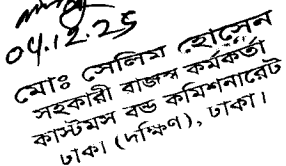 04.12.25
মোঃ সেলিম হোসেন
সহকারী রাজস্ব কর্মকর্তা
কাস্টমস বন্ড কমিশনারেট
ঢাকা (দক্ষিণ), ঢাকা।